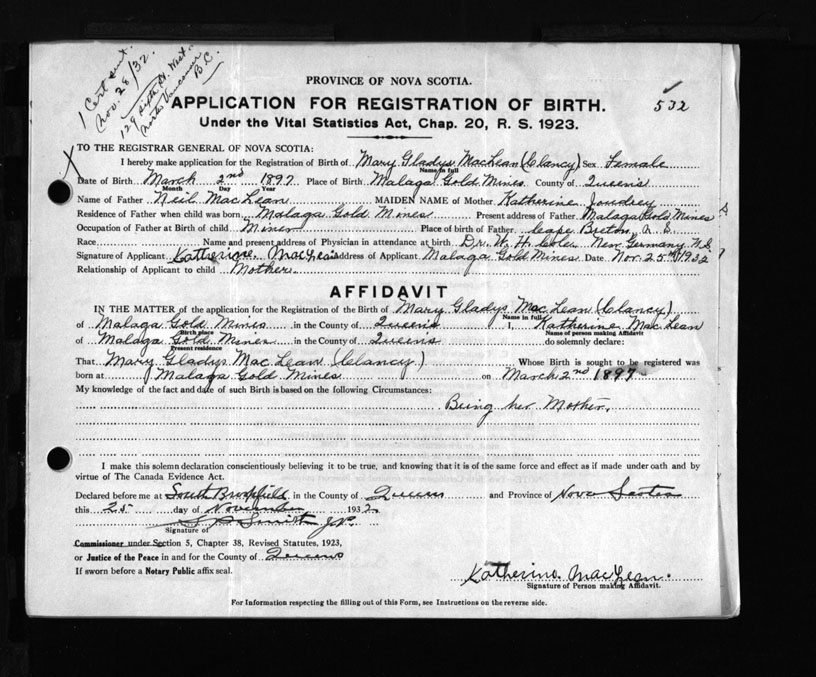 1 Cert sent.
Nov. 28/32.
129 Sixth St. West.
North Vancouver
B.C.
PROVINCE OF NOVA SCOTIA.
APPLICATION FOR REGISTRATION OF BIRTH.
532
Under the Vital Statistics Act, Chap. 20, R. S. 1923.
X TO THE REGISTRAR GENERAL OF NOVA SCOTIA:
I hereby make application for the Registration of Birth of Mary Gladys MacLean (Clancy) Sex Female
Name in full
Date of Birth March 2nd 1897 Place of Birth Malaga Gold Mines County of Queens
Month Day Year
Name of Father Neil MacLean MAIDEN NAME of Mother Katherine Joudrey
Residence of Father when child was born Malaga Gold Mines Present address of Father Malaga Gold Mines
Occupation of Father at Birth of child Miner Place of birth of Father Cape Breton, N.S.
Race Name and present address of Physician in attendance at birth Dr. W. H. Cole New Germany N.S.
Signature of Applicant Katherine MacLean Address of Applicant Malaga Gold Mines Date Nov. 25th 1932
Relationship of Applicant to child Mother.
AFFIDAVIT
IN THE MATTER of the application for the Registration of the Birth of Mary Gladys MacLean (Clancy)
Name in full
of Malaga Gold Mines in the County of Queens I, Katherine MacLean
Birth place Name of person making Affidavit
of Malaga Gold Mines in the County of Queens do solemnly declare:
Present residence
That Mary Gladys MacLean (Clancy) Whose Birth is sought to be registered was
born at Malaga Gold Mines on March 2nd 1897
My knowledge of the fact and date of such Birth is based on the following Circumstances:
Being her Mother.
I make this solemn declaration conscientiously believing it to be true, and knowing that it is of the same force and effect as if made under oath and by
virtue of The Canada Evidence Act.
Declared before me at South Brookfield in the County of Queens and Province of Nova Scotia
this 25 day of November 1932
Smith J.P.
Signature of
Commissioner under Section 5, Chapter 38, Revised Statutes, 1923,
or Justice of the Peace in and for the County of Queens
If sworn before a Notary Public affix seal.
Katherine MacLean.
Signature of Person making Affidavit.
For Information respecting the filling out of this Form, see Instructions on the reverse side.